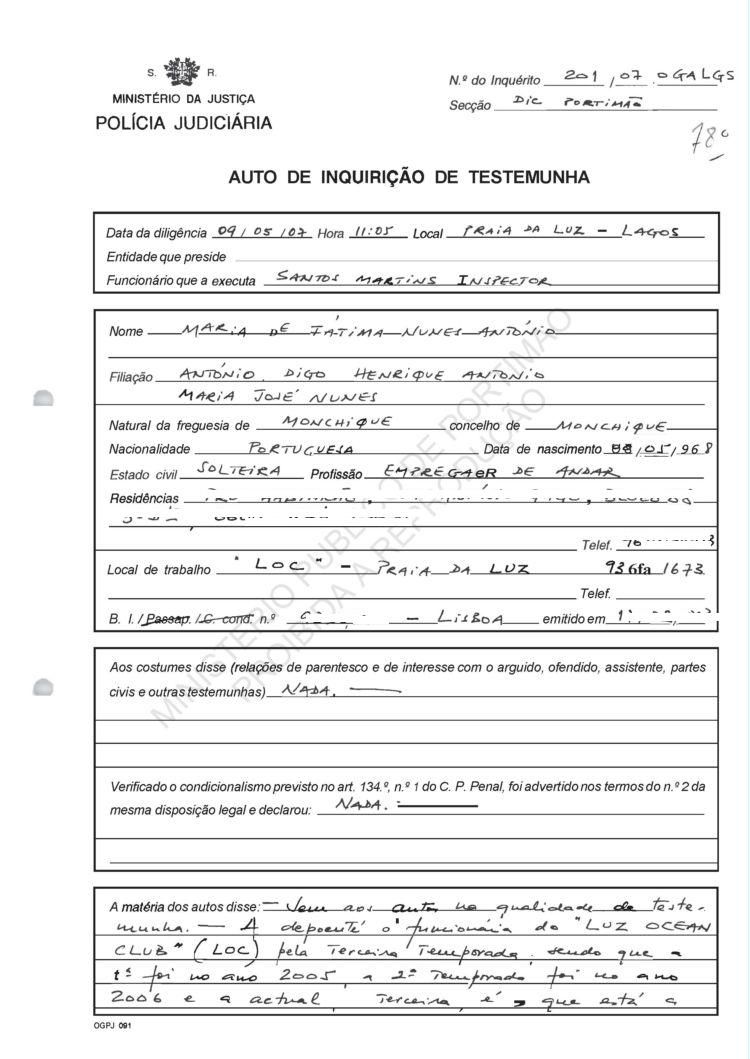 S. R.
MINISTÉRIO DA JUSTIÇA
POLÍCIA JUDICIÁRIA
N.º do Inquérito 201 / 07 . 0GALGS
Secção DIC PORTIMÃO
78º
AUTO DE INQUIRIÇÃO DE TESTEMUNHA
Data da diligência 09/05/07 Hora 11:05 Local PRAIA DA LUZ - LAGOS
Entidade que preside
Funcionário que a executa SANTOS MARTINS INSPECTOR
Nome MARIA DE FÁTIMA NUNES ANTÓNIO
Filiação ANTÓNIO DIGO HENRIQUE ANTÓNIO
MARIA JOSÉ NUNES
Natural da freguesia de MONCHIQUE concelho de MONCHIQUE
Nacionalidade PORTUGUESA Data de nascimento /05/968
Estado civil SOLTEIRA Profissão DE ANDAR
Residências
Telef.
Local de trabalho "LOC" - PRAIA DA LUZ 1673
Telef.
B. I. / Passap. / C. cond. n.º - LISBOA emitido em
Aos costumes disse (relações de parentesco e de interesse com o arguido, ofendido, assistente, partes
civis e outras testemunhas) NADA.
Verificado o condicionalismo previsto no art. 134.º, n.º 1 do C. P. Penal, foi advertido nos termos do n.º 2 da
mesma disposição legal e declarou: NADA.
A matéria dos autos disse: — Vem aos autos na qualidade de teste-
munha. — A depoente é funcionária do "LUZ OCEAN
CLUB" (LOC) pela Terceira Temporada, sendo que a
1ª foi no ano 2005, a 2ª Temporada foi no ano
2006 e a actual, Terceira, é, que está a
OGPJ 091
MINISTÉRIO PÚBLICO DE PORTIMÃO
PROIBIDA A REPRODUÇÃO